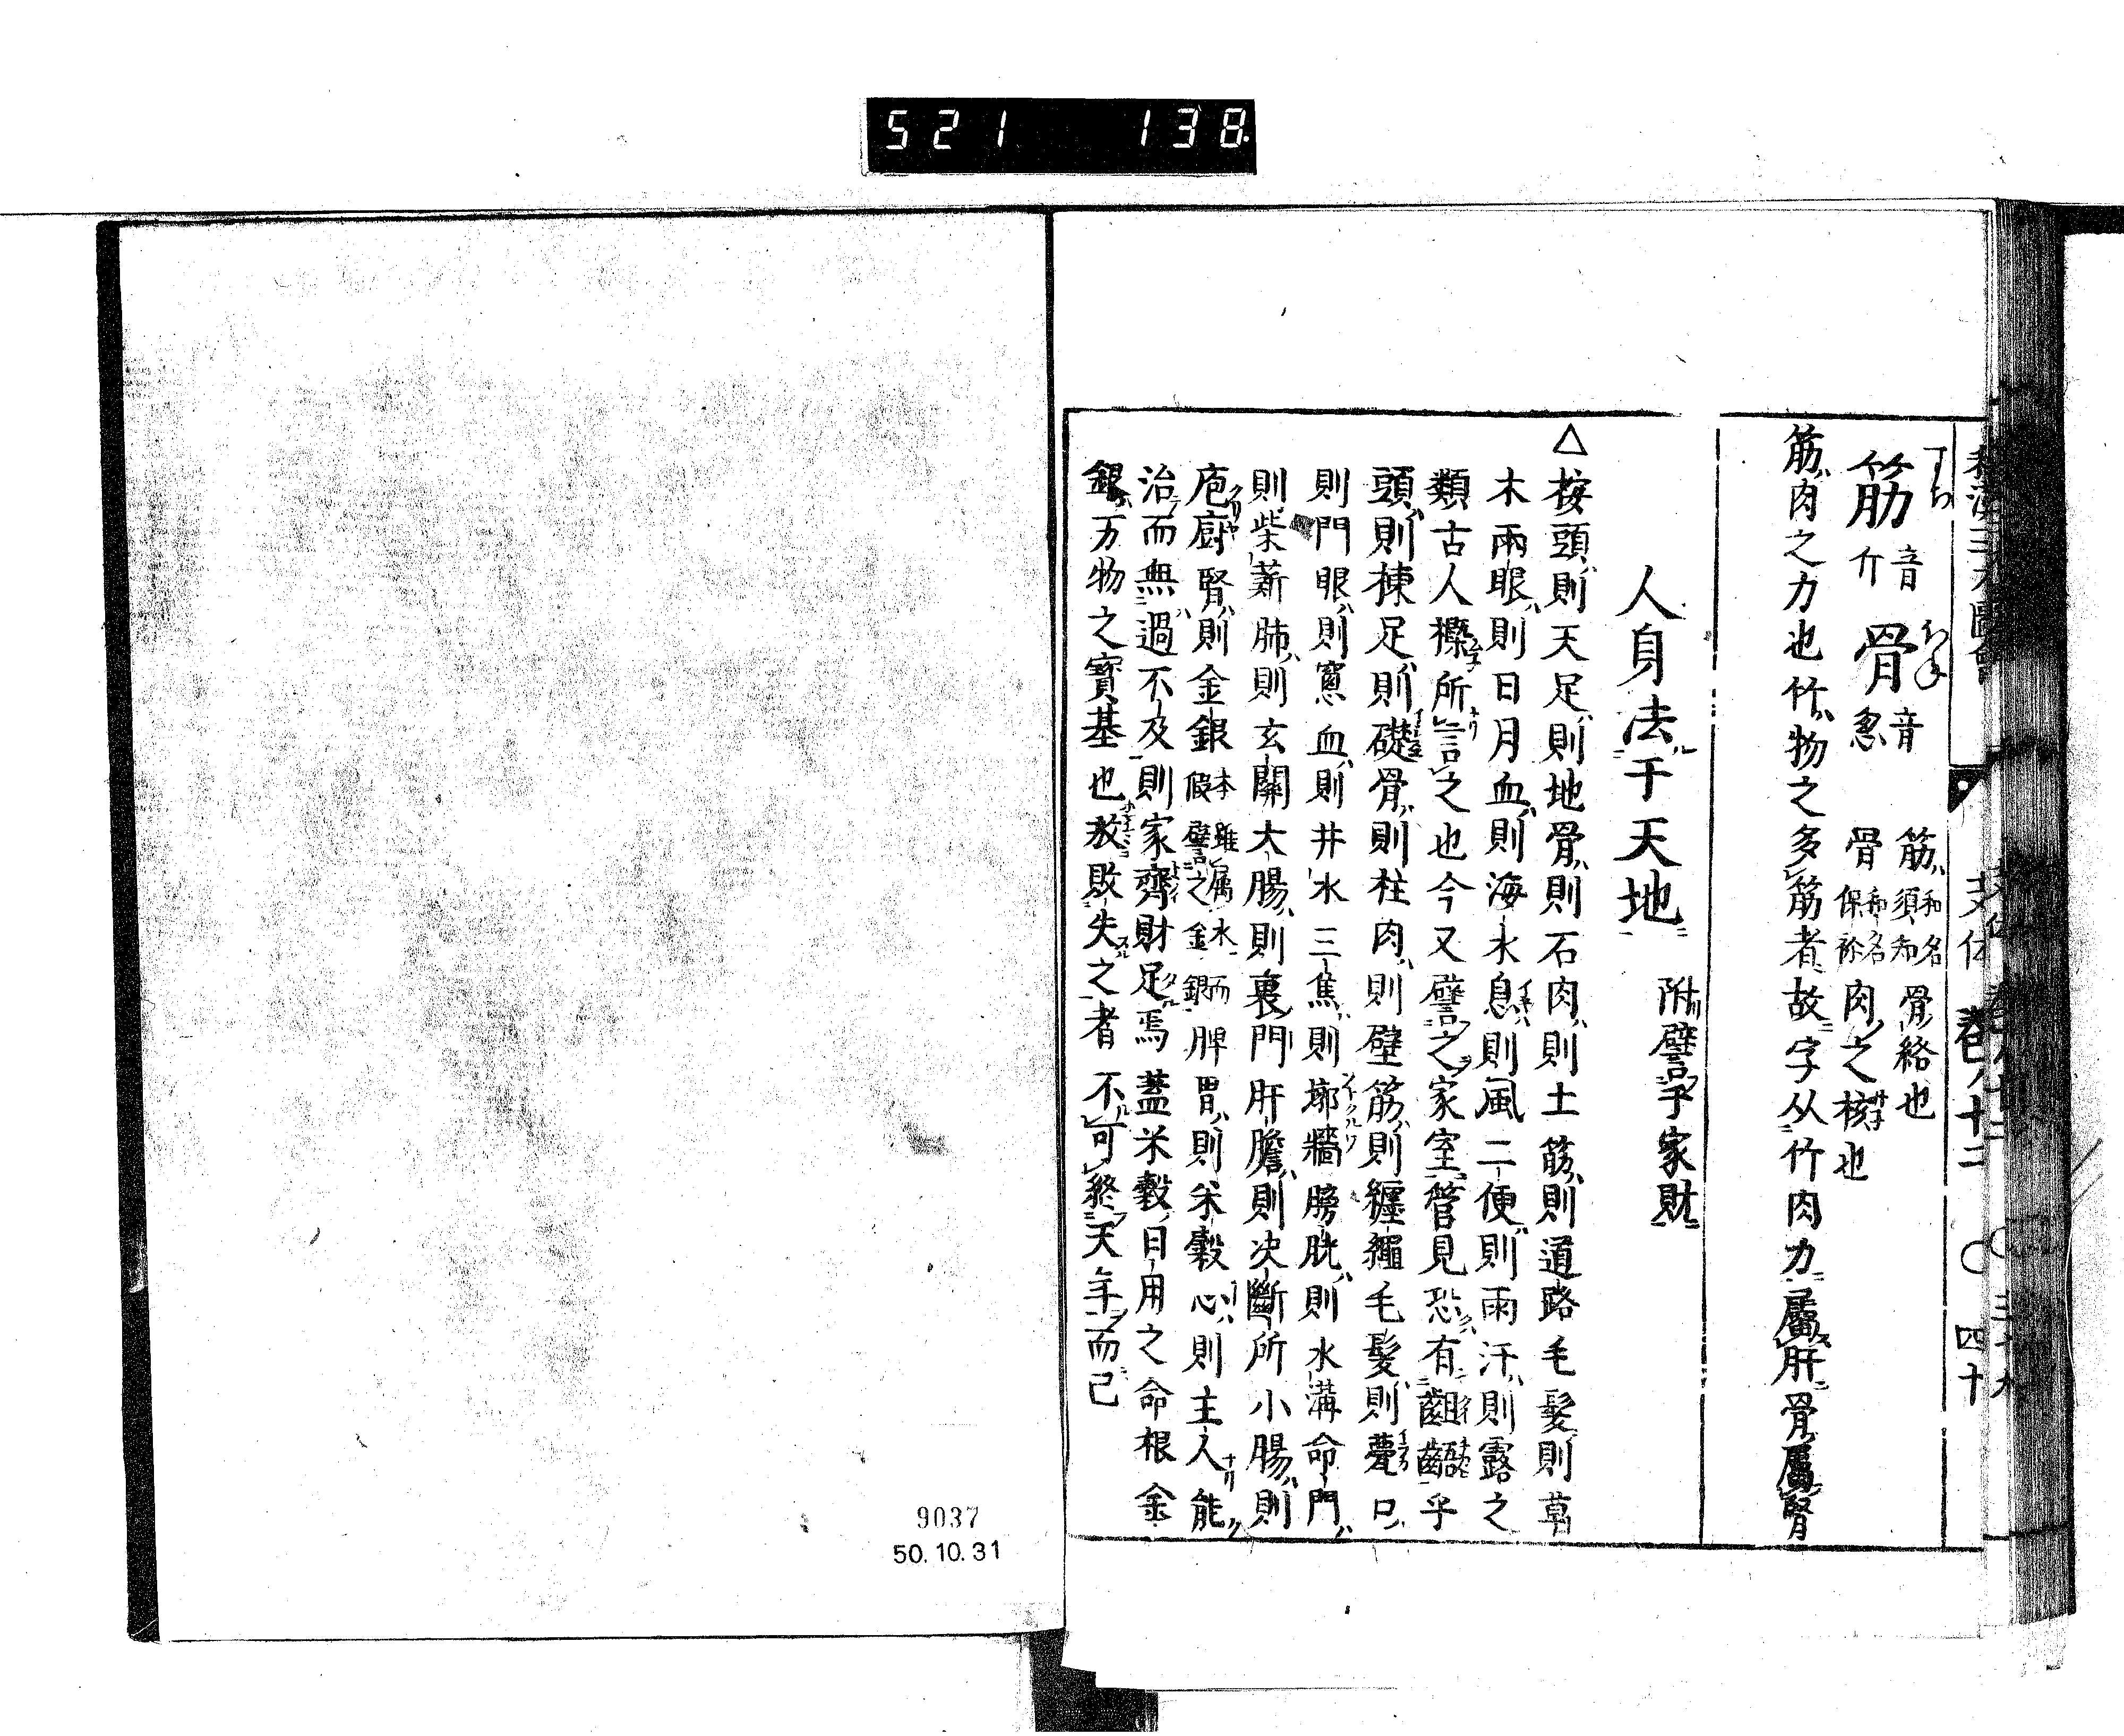 521 138
支体 卷ノ十二 〇 四十
筋 すぢ 音介 骨 ほね 音忽
筋ハ和名須知骨絡也
骨和名保祢肉ノ之核也
筋ハ肉之力也竹ハ物之多筋者故字从竹肉力属肝骨属腎
人身法于天地 附譬于家財
△按頭ハ則天足ハ則地骨ハ則石肉ハ則土筋ハ則道路毛髮ハ則草
木兩眼ハ則日月血ハ則海水息ハ則風二便ハ則雨汗ハ則露之
類古人槩所言之也今又譬之家室管見恐有齟齬乎
頭ハ則棟足ハ則礎骨ハ則柱肉ハ則壁筋ハ則纒繩毛髮ハ則甍口ハ
則門眼ハ則窓血ハ則井水三焦ハ則墎牆膀胱ハ則水溝命門ハ
則柴薪肺ハ則玄關大腸ハ則裏門肝膽ハ則决斷所小腸ハ則
庖厨腎ハ則金銀本雖属水而假譬之金銀脾胃ハ則米穀心ハ則主人能
治而無過不及則家齊財足焉蓋米穀日用之命根金
銀ハ万物之寳基也放敗失之者不可終天年而已
9037
50.10.31